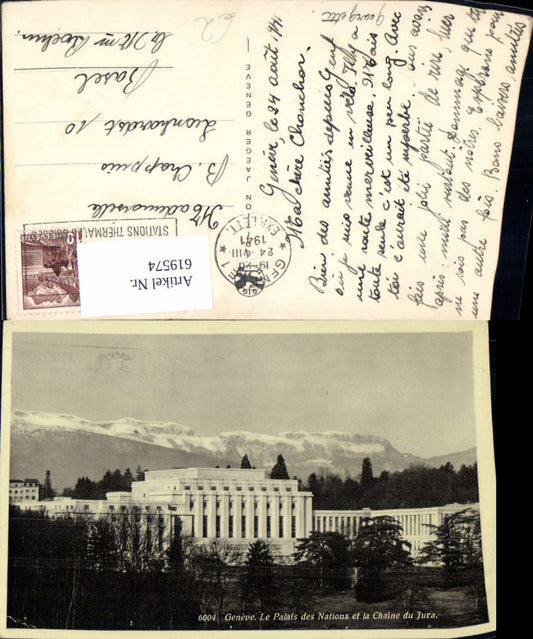 Genève, 24 août 41.
Ma chère Chouchou.
Bien des amitiés depuis Genf
où je suis venue en vélo. Il y a
une route merveilleuse. Mais
toute seule c'est un peu long. Avec
toi c'aurait été superbe. Nous avons
fait une jolie partie de rire, hier
après-midi Dommage que tu
ne sois pas des nôtres. Espérons pour
une autre fois. Bons baisers, amitiés
Georgette
ON JAEGER GENEVE
GENÈVE 1
24.VIII
1941
EXP. LETT.
STATIONS THERMALES SUISSES
Mademoiselle
B. Chappuis
Leonhardst 10
Basel
Artikel Nr.
619574
6004 Genève. Le Palais des Nations et la Chaîne du Jura.